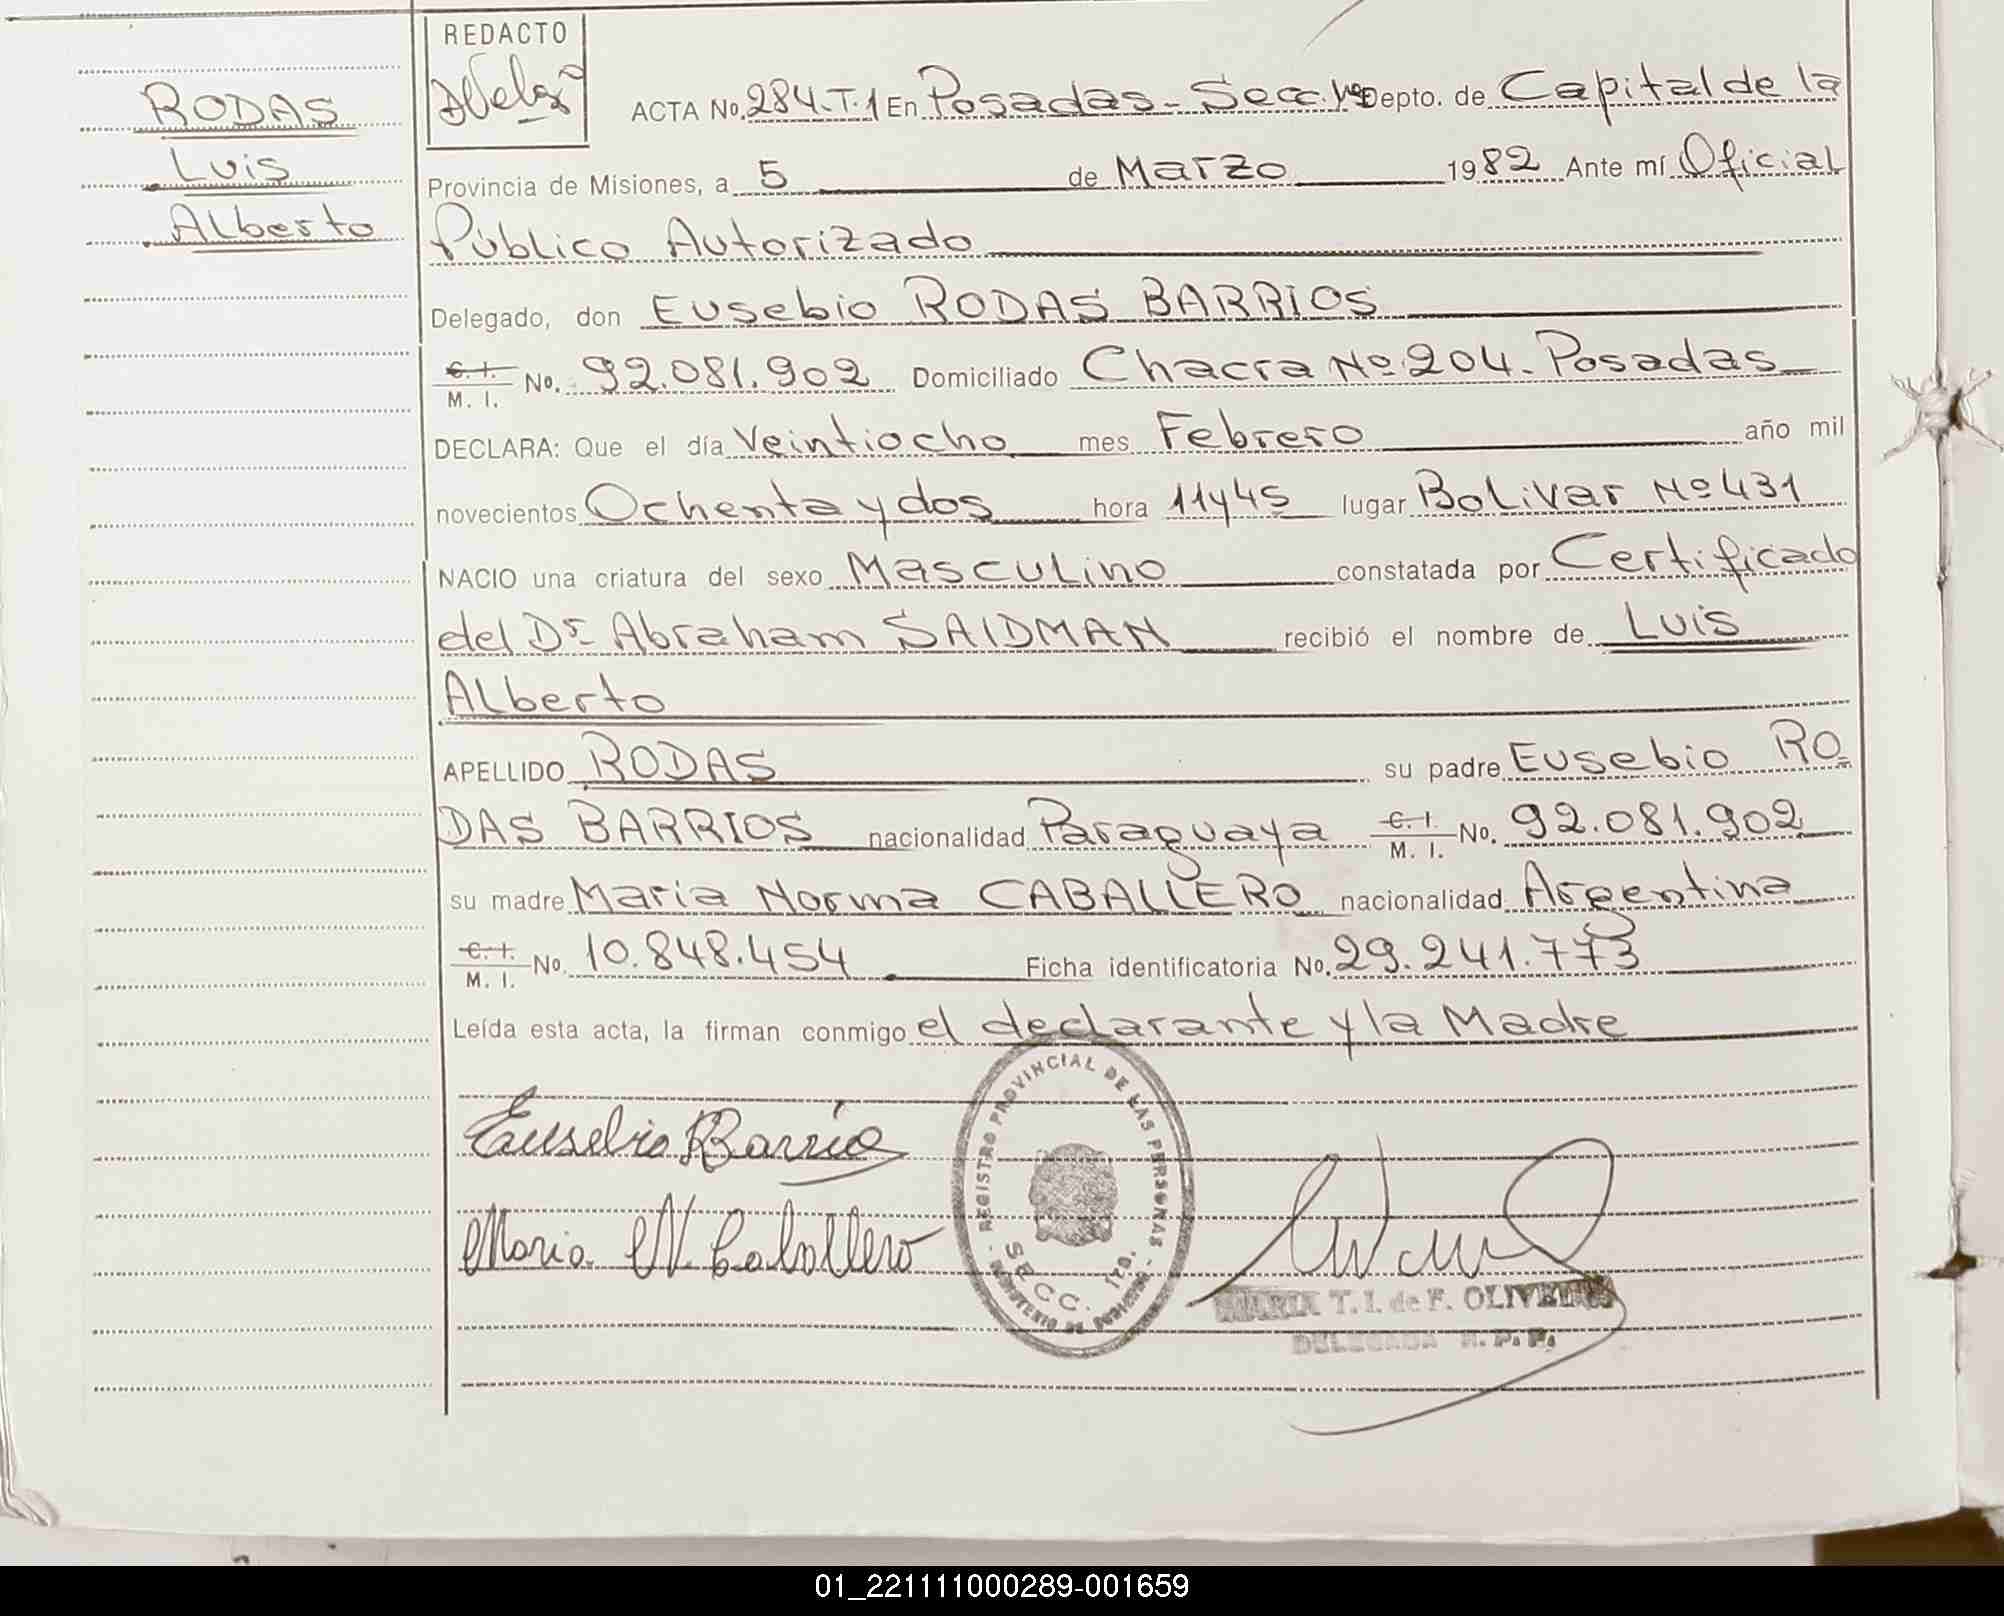 RODAS
Luis
Alberto
REDACTO
ACTA No. 284-T.1 En Posadas - Secc. 1ª Depto. de Capital de la
Provincia de Misiones, a 5 de Marzo 1982 Ante mí Oficial
Público Autorizado
Delegado, don Eusebio RODAS BARRIOS
C. I. / M. I. No. 92.081.902 Domiciliado Chacra Nº 204 - Posadas
DECLARA: Que el día Veintiocho mes Febrero año mil
novecientos Ochenta y dos hora 11 y 45 lugar Bolivar Nº 431
NACIO una criatura del sexo Masculino constatada por Certificado
del Dr. Abraham SAIDMAN recibió el nombre de Luis
Alberto
APELLIDO RODAS su padre Eusebio RO-
DAS BARRIOS nacionalidad Paraguaya C. I. / M. I. No. 92.081.902
su madre Maria Norma CABALLERO nacionalidad Argentina
C. I. / M. I. No. 10.848.454 Ficha identificatoria No. 29.241.773
Leída esta acta, la firman conmigo el declarante y la Madre
Eusebio R Barrios
Maria N. Caballero
REGISTRO PROVINCIAL DE LAS PERSONAS
MINISTERIO DE GOBIERNO
SECC. 1RA.
MARIA T. I. de F. OLIVEIRA
DELEGADA R. P. P.
01_221111000289-001659